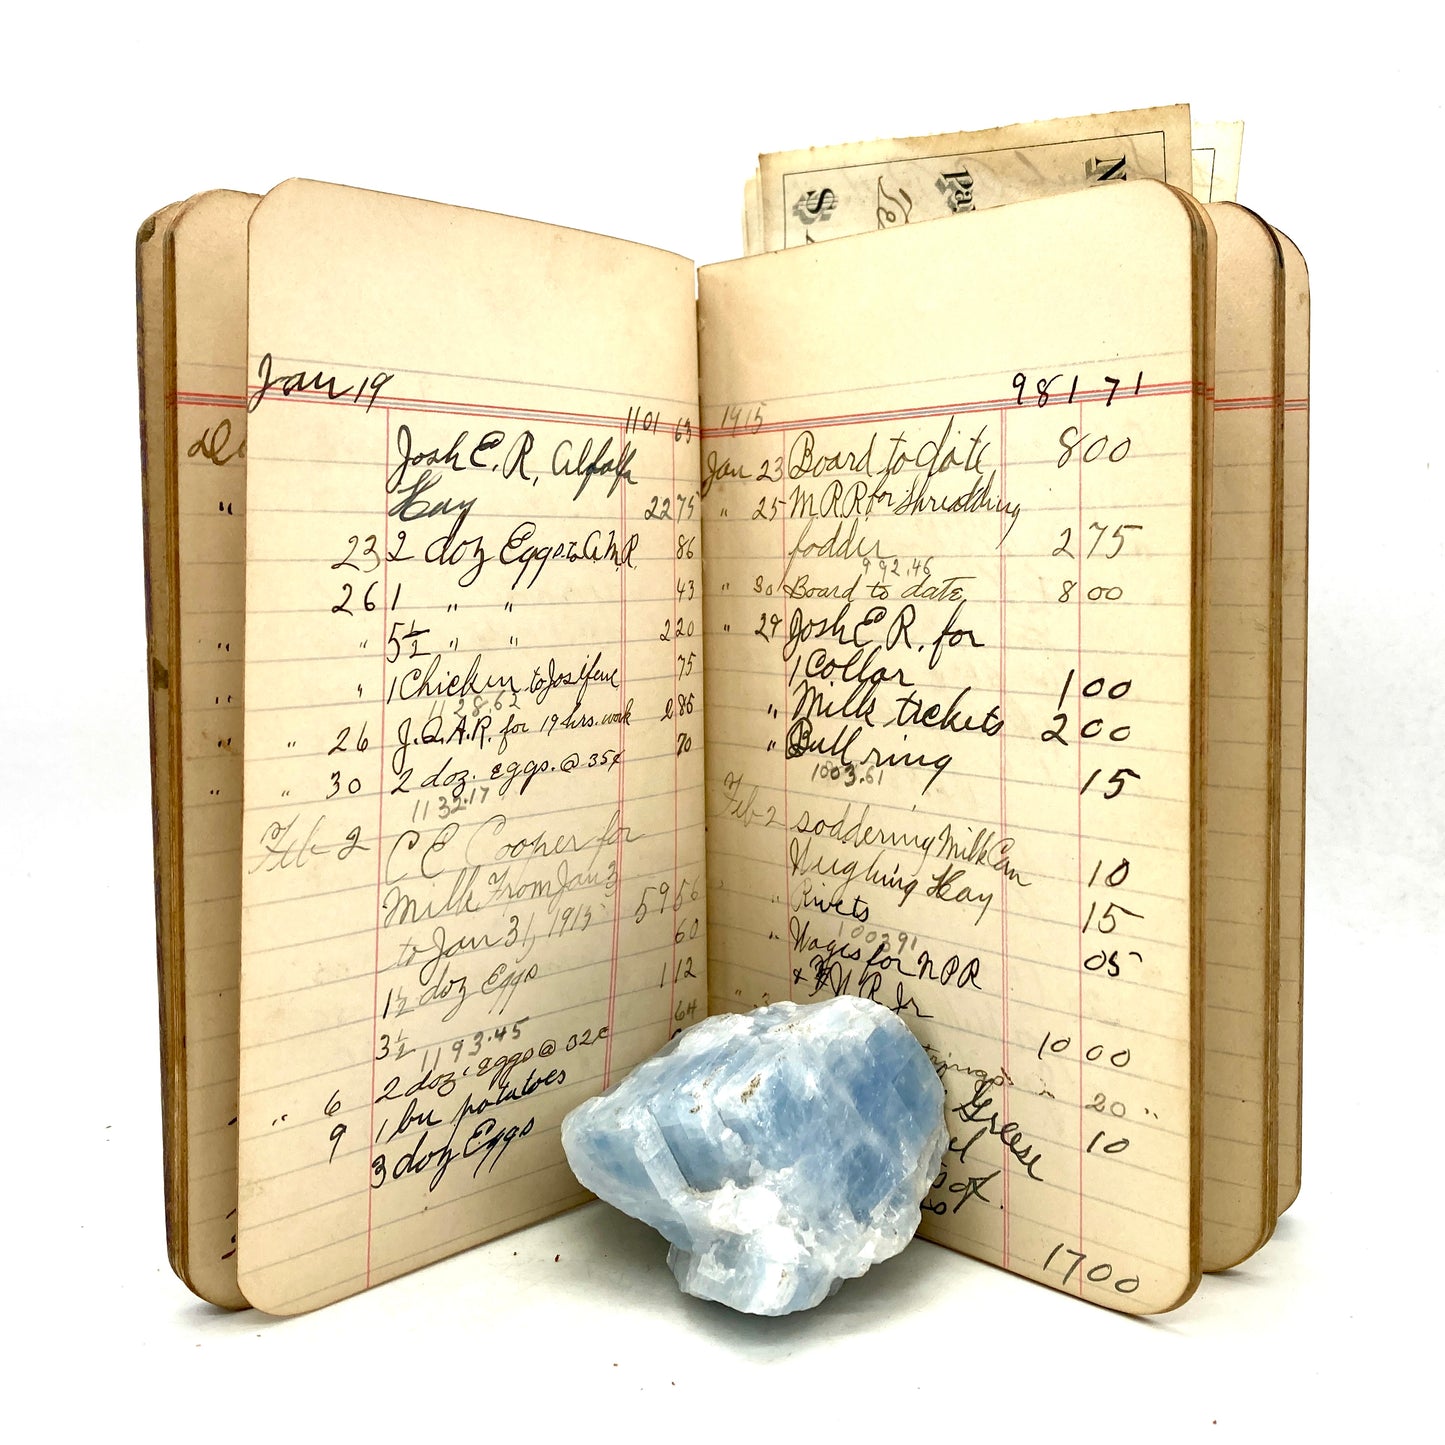 Jan 19
1101 63
Josh E. R. Alfalfa
Hay 22 75
23 2 doz Eggs to A.M.R. 86
26 1 " " 43
" 5½ " " 2 20
" 1 Chicken to 75
1128.62
" 26 J.Q.A.R. for 19 hrs. work 2 85
" 30 2 doz. eggs. @ 35¢ 70
1132.17
Feb 2 C E Cooper for
Milk From Jan 3
to Jan 31, 1915 59 56
1½ doz Eggs 60
3½ 1 12
1193.45
" 6 2 doz. eggs @ 32c 64
9 1 bu potatoes
3 doz Eggs
981 71
1915
Jan 23 Board to date 8 00
" 25 M.R.R. for shredding
fodder 2 75
992.46
" 30 Board to date 8 00
" 29 Josh E R. for
1 Collar 1 00
" Milk tickets 2 00
" Bull ring 15
1003.61
Feb 2 soddering Milk Can 10
Weighing Hay 15
" Rivets 05
1003 91
" Wages for N P R
& W R Jr
10 00
20 "
Greese 10
of
17 00
De
"
"
"
"
"
N
pa
$